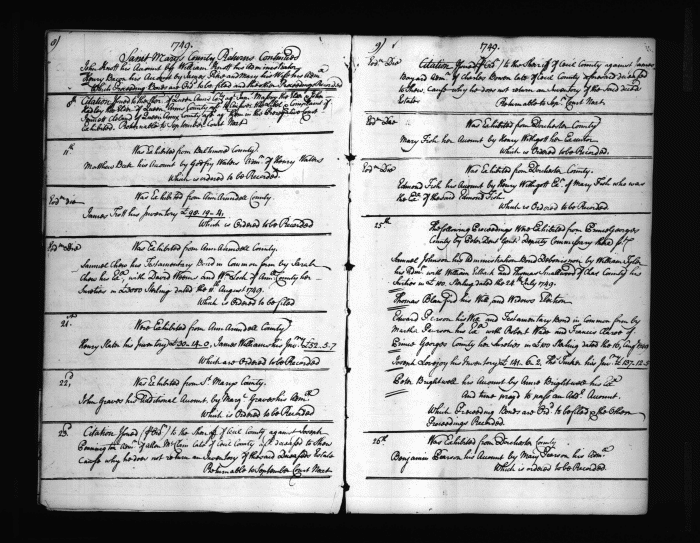 9)
1749.
Saint Marys County Returns Continued
John Knott his Account by William Knott his Administrator
Henry Bacon his Account by James and Mary his Wife his Adm.
Which Preceeding Bonds are Ord. to be filed and the other Proceedings Recorded
8th Citation Issued to the Sheriff of Queen Anns County
Returnable to September Court Next
11th
Was Exhibited from Baltimore County
Mathew Beck his Account by Godfry Waters Adm. of Henry Waters
Which is ordered to be Recorded
Eod. die
Was Exhibited from Ann Arundell County.
James Tott his Inventory £90.19.4.
Which is Ordered to be Recorded
Eod. Die
Was Exhibited from Ann Arundell County.
Samuel Chew his Testamentary Bond in Common form by Sarah
Chew his Ex. with David Weems and Wm. Lock of Ann County her
Sureties in £3000 Sterling dated the August 1749.
Which is Ordered to be filed
21st
Were Exhibited from Ann Arundell County
Henry Slater his Inventory £30.14.0. James Williams his Inv. £52.5.7
Which are Ordered to be Recorded
22d
Was Exhibited from St. Marys County.
John Graves his Additional Account. by Mary Graves his Adm.
Which is Ordered to be Recorded
23d. Citation Issued to the Sheriff of Cecil County against
Pennington Adm. of late of Cecil County deceased to Shew
Cause why he does not return an Inventory of the said Deceaseds Estate
Returnable to September Court Next
9)
1749.
Eod. Die
Citation Issued to the Sheriff of Cecil County against
Adm. of Charles Bowen late of Cecil County deceased to
Shew Cause why he does not return an Inventory of the said deceased
Estate
Returnable to Sep. Court Next.
Eod. Die
Was Exhibited from Dorchester County
Mary Fish her Account by Henry Withgott her Executor
Which is Ordered to be Recorded.
Eod. Die
Was Exhibited from Dorchester County.
Edmond Fish his Account by Henry Withgott Ex. of Mary Fish who was
the Ex. of the said Edmond Fish.
Which is Ordered to be Recorded.
25th
The following Proceedings Were Exhibited from Prince Georges
County by Peter Dent Gent. Deputy Commissary thereof
Samuel Johnson his Administration Bond by William Tyler
his Adm. with William Elliott and Thomas Smallwood of Charles County his
Sureties in £100 Sterling dated the 24th July 1749.
Thomas Blandford his Will and Widows Election
Edward Pierson his Will and Testamentary Bond in Common form by
Martha Pierson his Ex. with Robert Wade and Francis of
Prince Georges County her Sureties in £100 Sterling dated the 16, Aug. 1749
Joseph Lovejoy his Inventory £141.6.2. Tho. Tucker his Inv. £137.12.5
Peter Brightwell his Account by Anne Brightwell his Ex.
And time pray'd to pass an Add. Account.
Which Preceeding Bonds are Ord. to be filed & the Other
Proceedings Recorded.
26th
Was Exhibited from Dorchester County
Benjamin Pearson his Account by Mary Pearson his Adm.
Which is ordered to be Recorded.